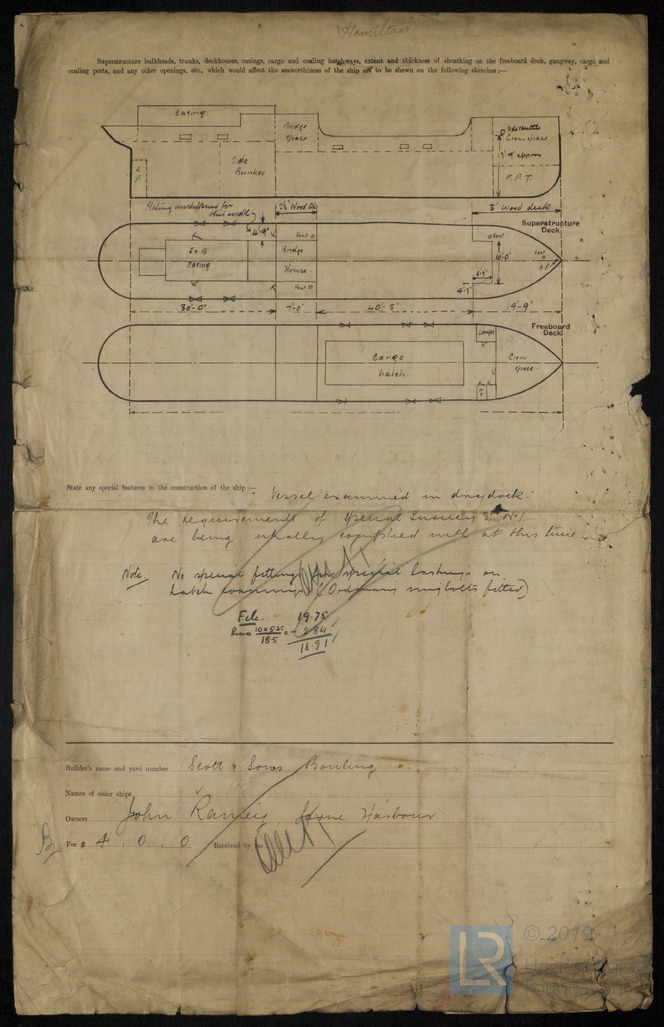 Hamilton
Superstructure bulkheads, trunks, deckhouses, casings, cargo and coaling hatchways, extent and thickness of sheathing on the freeboard deck, gangway, cargo and
coaling ports, and any other openings, etc., which would affect the seaworthiness of the ship are to be shewn on the following sketches:—
Casing
Bridge
space
Crew space
Side
Bunker
A
P
F.P.T.
2½" Wood Dk
3" Wood deck
Superstructure
Deck
Vent
Vent
E & B
Casing
Bridge
House
Vent
10'-0"
30'-0"
7'-0"
40'-3"
19'-9"
Freeboard
Deck
Lamps
Cargo
hatch
Crew
space
State any special features in the construction of the ship:—
Vessel examined in drydock.
The requirements of Special Survey No 1
are being wholly complied with at this time.
Note No special fittings for special lashings on
hatch coamings (Ordinary ringbolts fitted)
Fcle. 19.75
10 x 5.25
18.5
= - 2.84
16.91
Builder's name and yard number Scott & Sons Bowling
Names of sister ships
Owners John Harbour.
Fee £ 4 . 0 . 0 Received by
LR © 2019
Lloyd's Register
Foundation